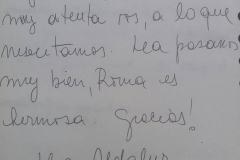 muy atenta ros, a lo que
nesecitamos. Lea pasamos
muy bien, Roma es
hermosa. Gracias!